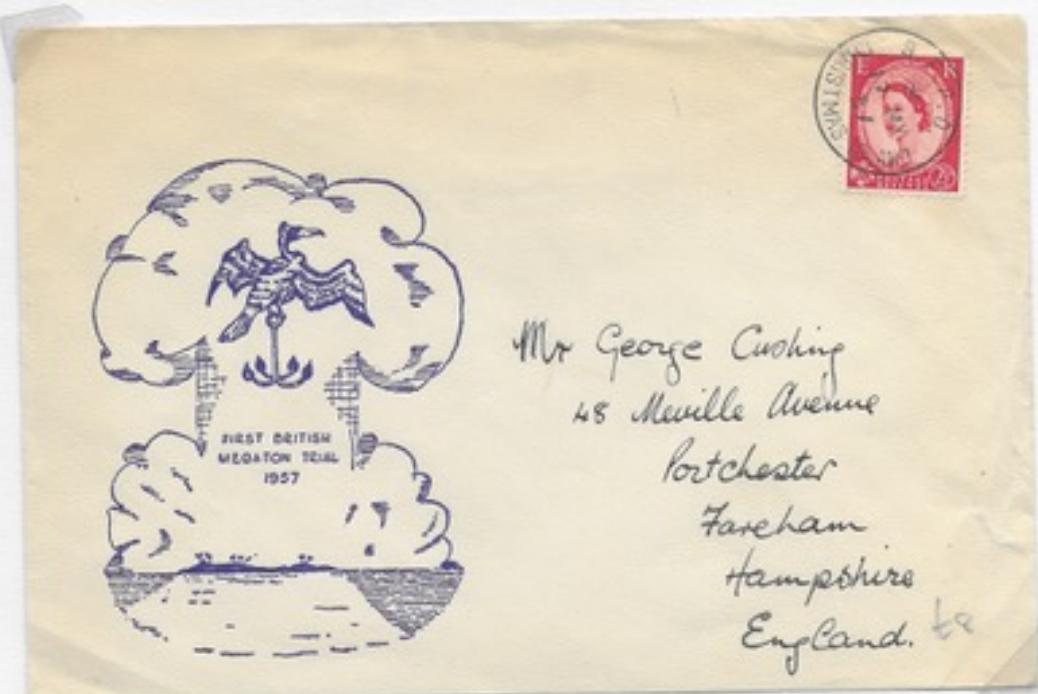 E R
CHRISTMAS
FIRST BRITISH
MEGATON TRIAL
1957
Mr George Cushing
48 Meville Avenue
Portchester
Fareham
Hampshire
England.
£8